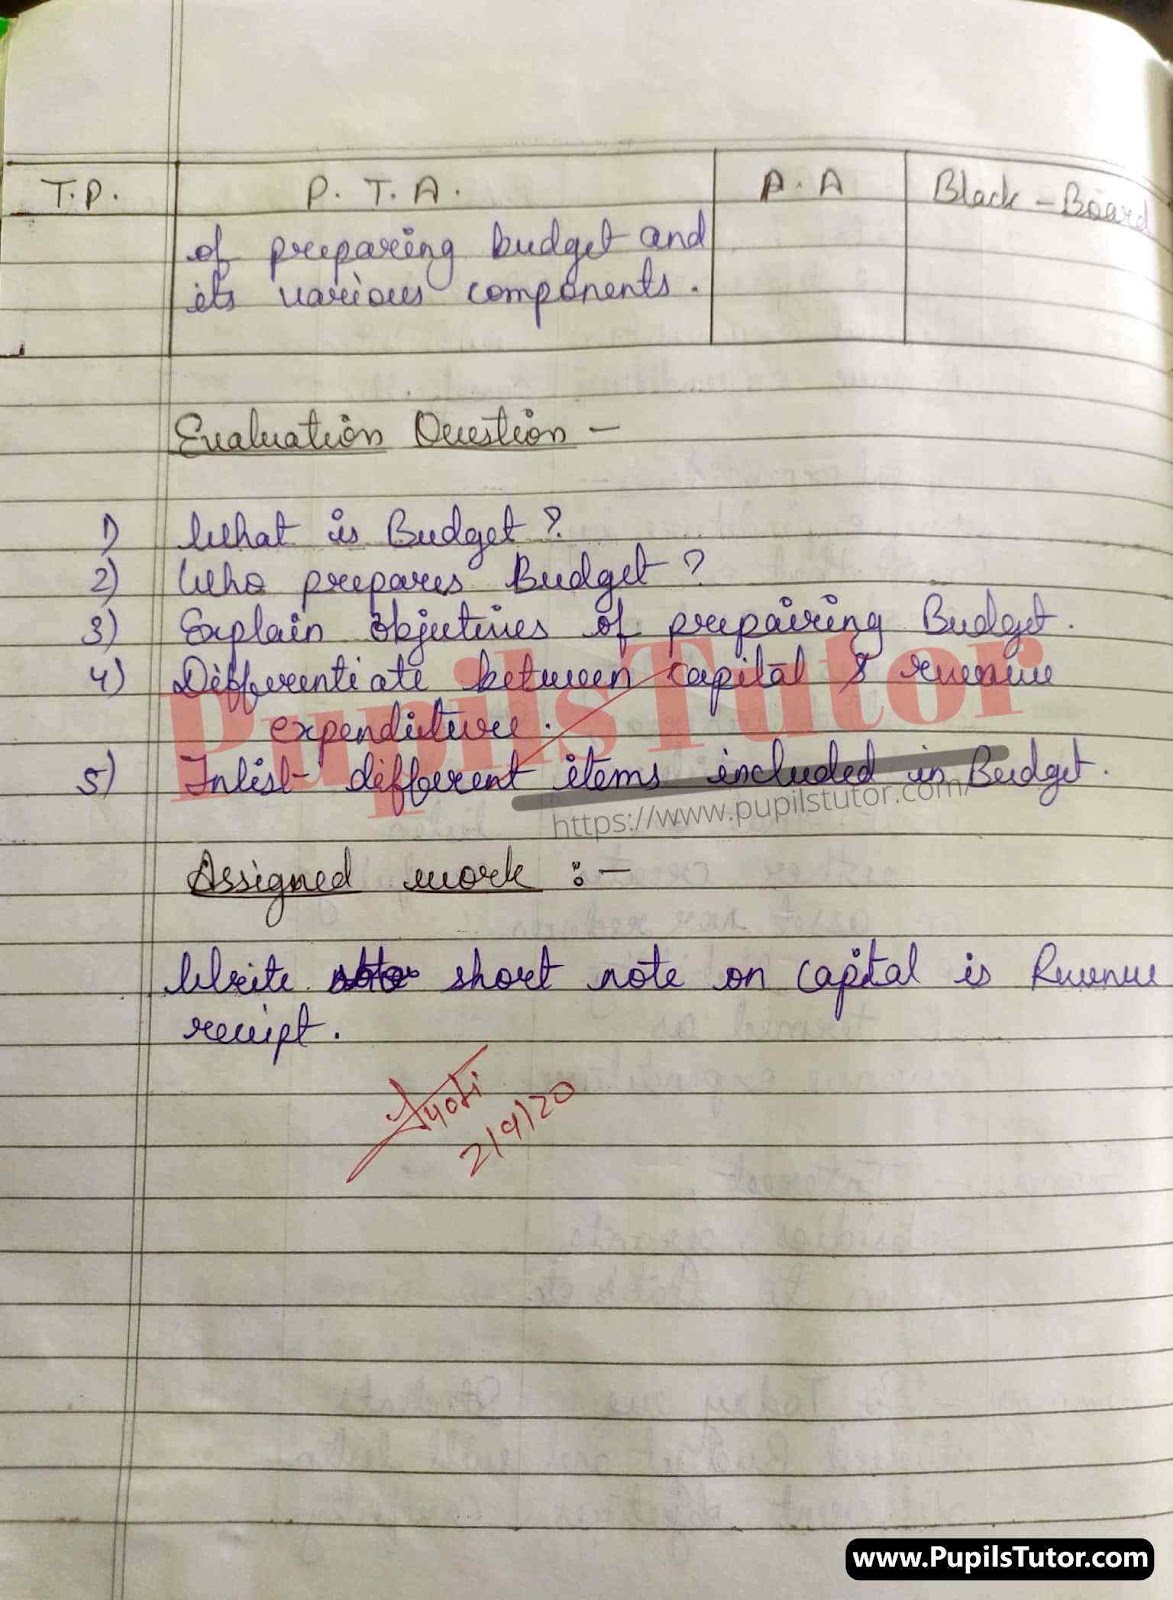 T.P. P.T.A. P.A Black-Board
of preparing budget and
its various components.
Evaluation Question -
1) What is Budget?
2) Who prepares Budget?
3) Explain objectives of prepairing Budget.
4) Differentiate between capital & revenue
expenditure.
5) Inlist different items included in Budget.
PupilsTutor
https://www.pupilstutor.com/
Assigned work :-
Write short note on capital is Revenue
receipt.
Jyoti
2/9/20
www.PupilsTutor.com